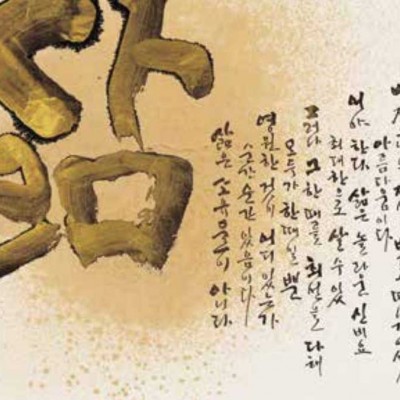 삶
삶은 소유물이 아니다.
순간순간 있음이다
영원한 것이 어디 있는가
모두가 한때일 뿐
그러나 그 한때를 최선을 다해
최대한으로 살 수 있
어야 한다. 삶은 놀라운 신비요
아름다움이다